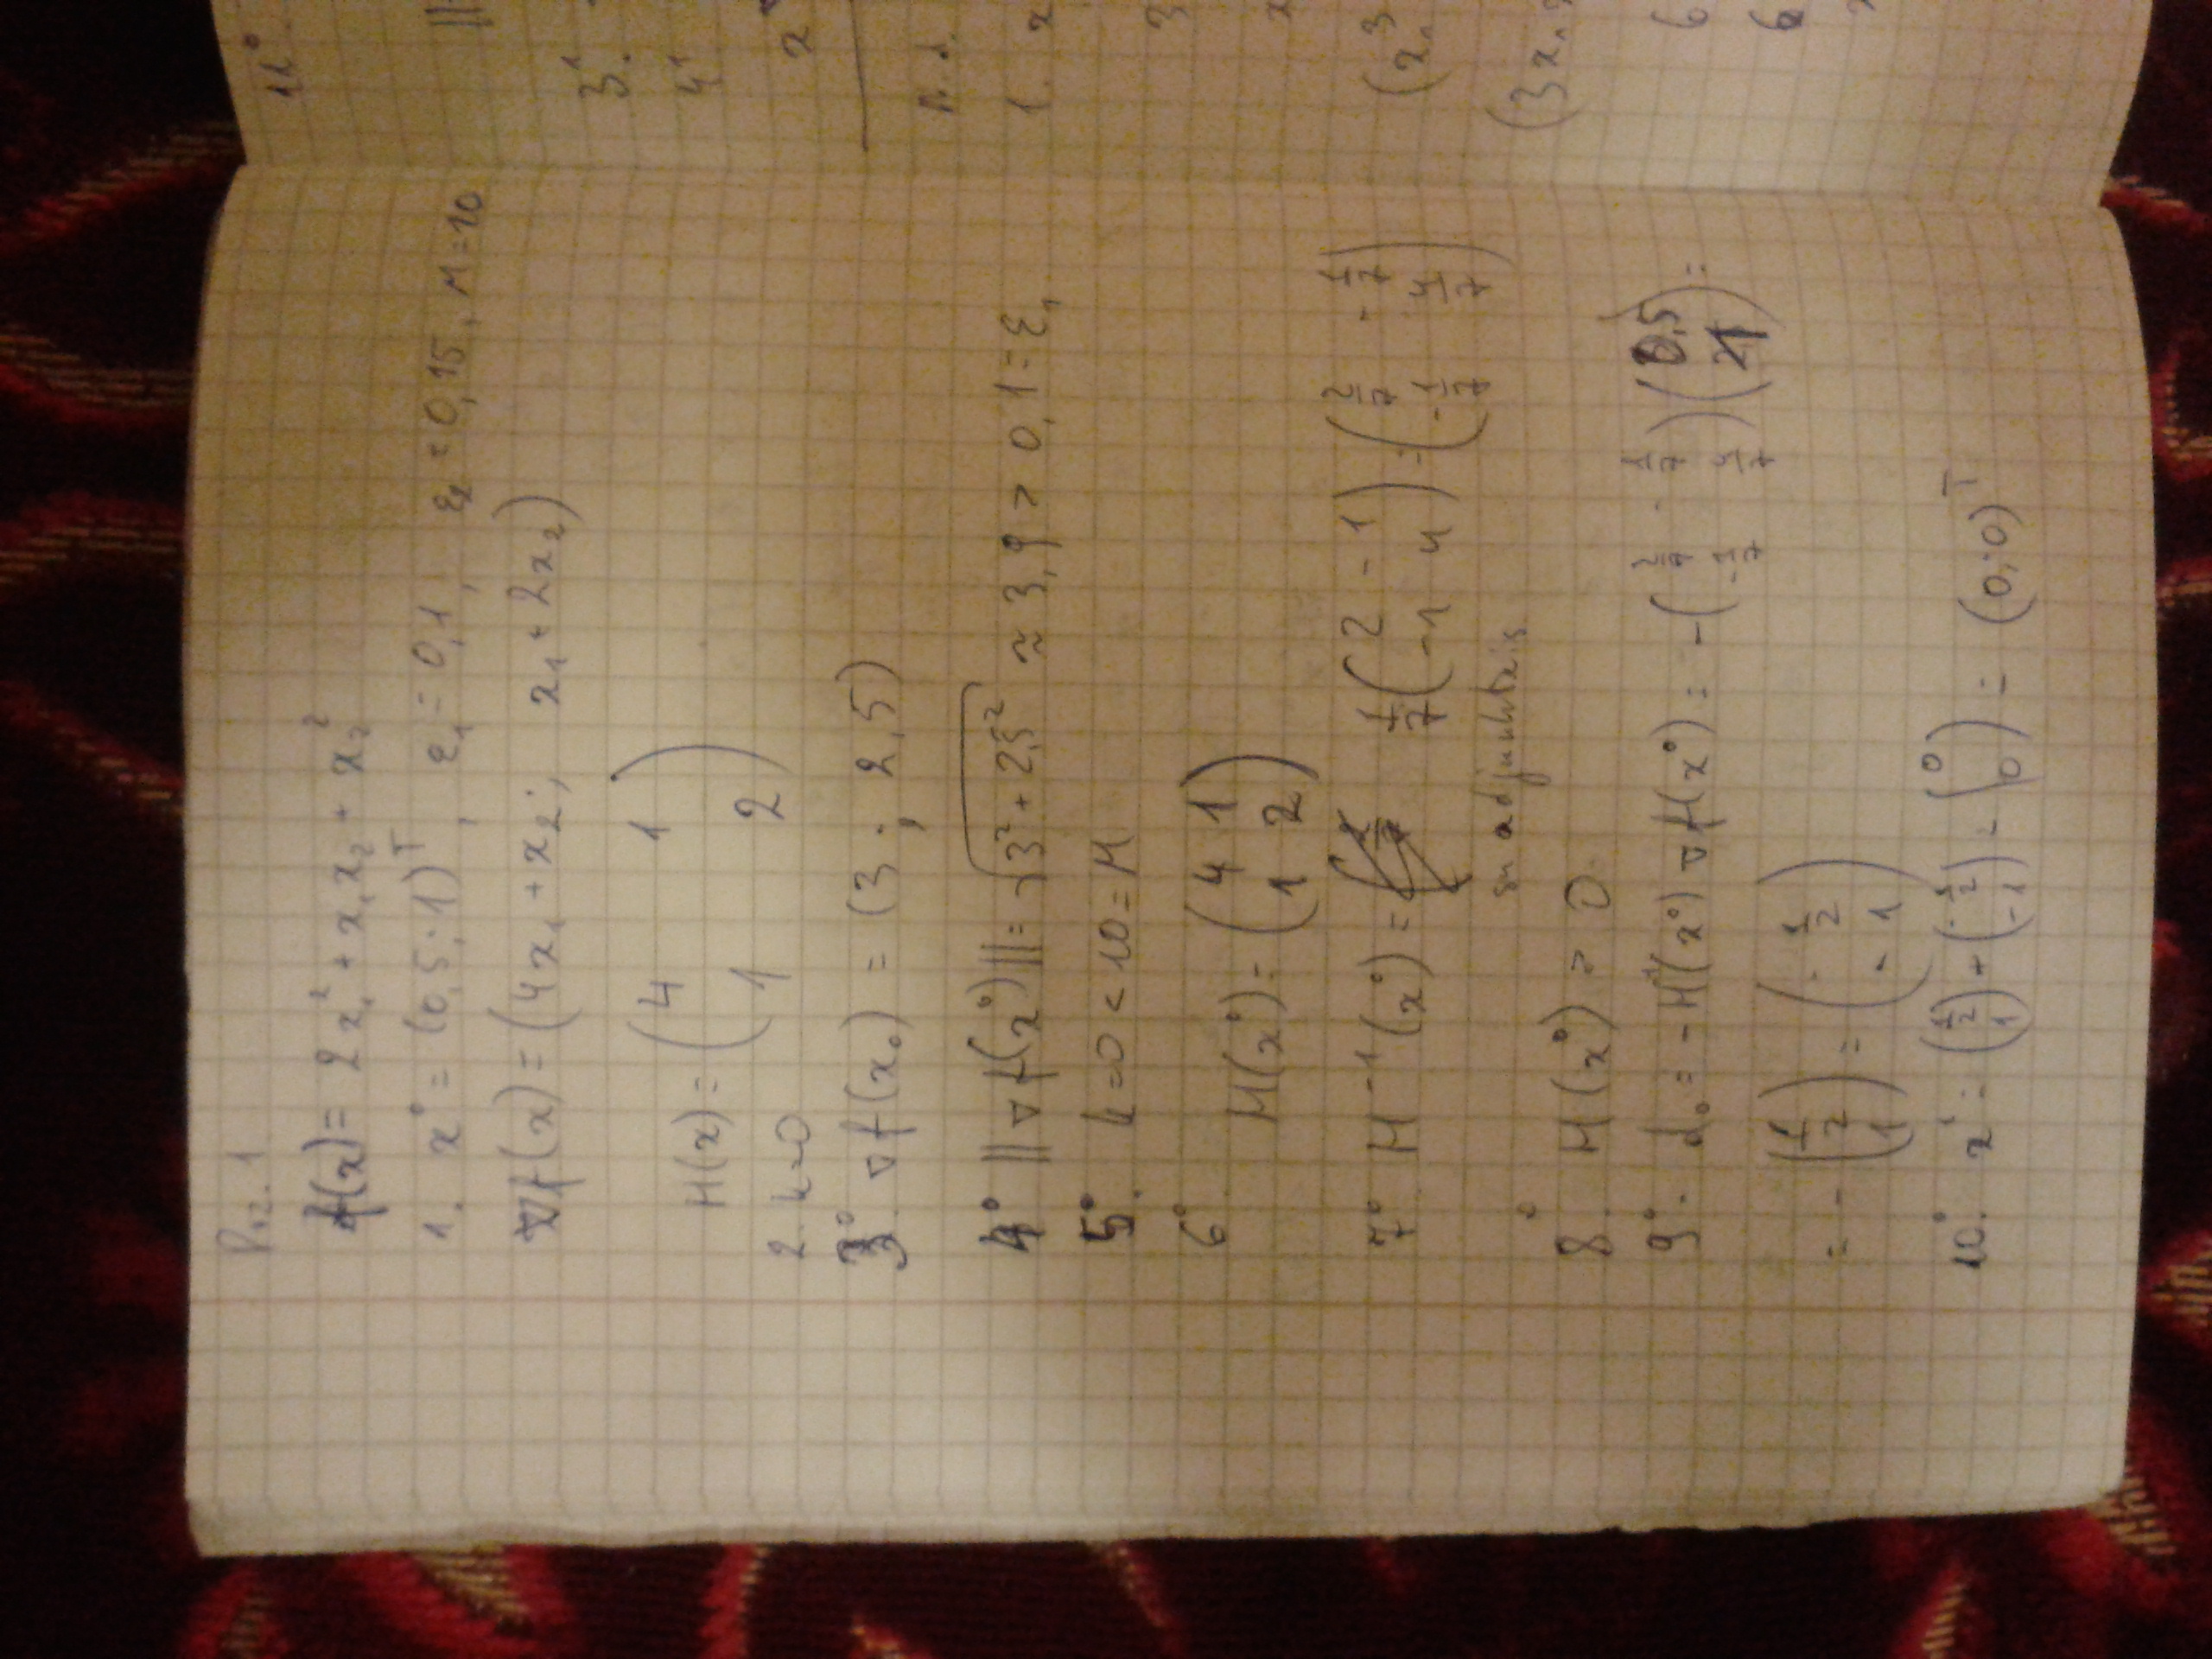 Pvz. 1
f(x) = 2x₁² + x₁x₂ + x₂²
1. x⁰ = (0,5; 1)ᵀ, ε₁ = 0,1, ε₂ = 0,15, M = 10
∇f(x) = (4x₁ + x₂; x₁ + 2x₂)
H(x) = (4 1
1 2)
2. k=0
3⁰. ∇f(x₀) = (3; 2,5)
4⁰ ||∇f(x⁰)|| = √3² + 2,5² ≈ 3,9 > 0,1 = ε₁
5⁰. k=0 < 10 = M
6⁰ H(x⁰) = (4 1
1 2)
7⁰ H⁻¹(x⁰) = 1/7 (2 -1
-1 4) = (2/7 -1/7
-1/7 4/7)
su adjunktais
8⁰. H(x⁰) > 0
9⁰. d₀ = -H⁻¹(x⁰) ∇f(x⁰) = -(2/7 -1/7
-1/7 4/7)
= -(1/2
1) = (-1/2
-1)
10⁰. x¹ = (1/2
1) + (-1/2
-1) = (0
0) = (0; 0)ᵀ
11⁰.
||
3¹.
4¹
x
1.
x
3
x
(x₁³
(3x₁
6
6